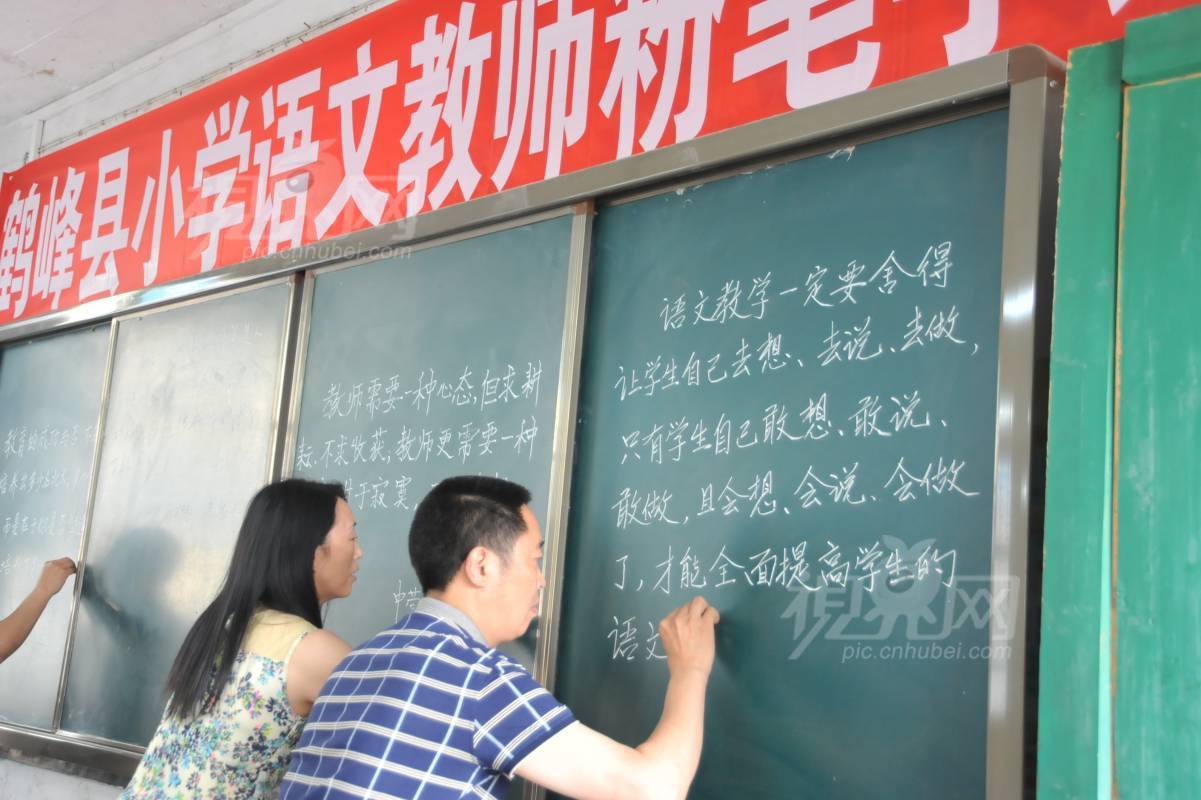 鹤峰县小学语文教师粉笔字
语文教学一定要舍得
让学生自己去想、去说、去做，
只有学生自己敢想、敢说、
敢做，且会想、会说、会做
了，才能全面提高学生的
语文
教师需要一种心态，但求耕
耘、不求收获，教师更需要一种
于寂寞，
视界网
pic.cnhubei.com
视界网
pic.cnhubei.com